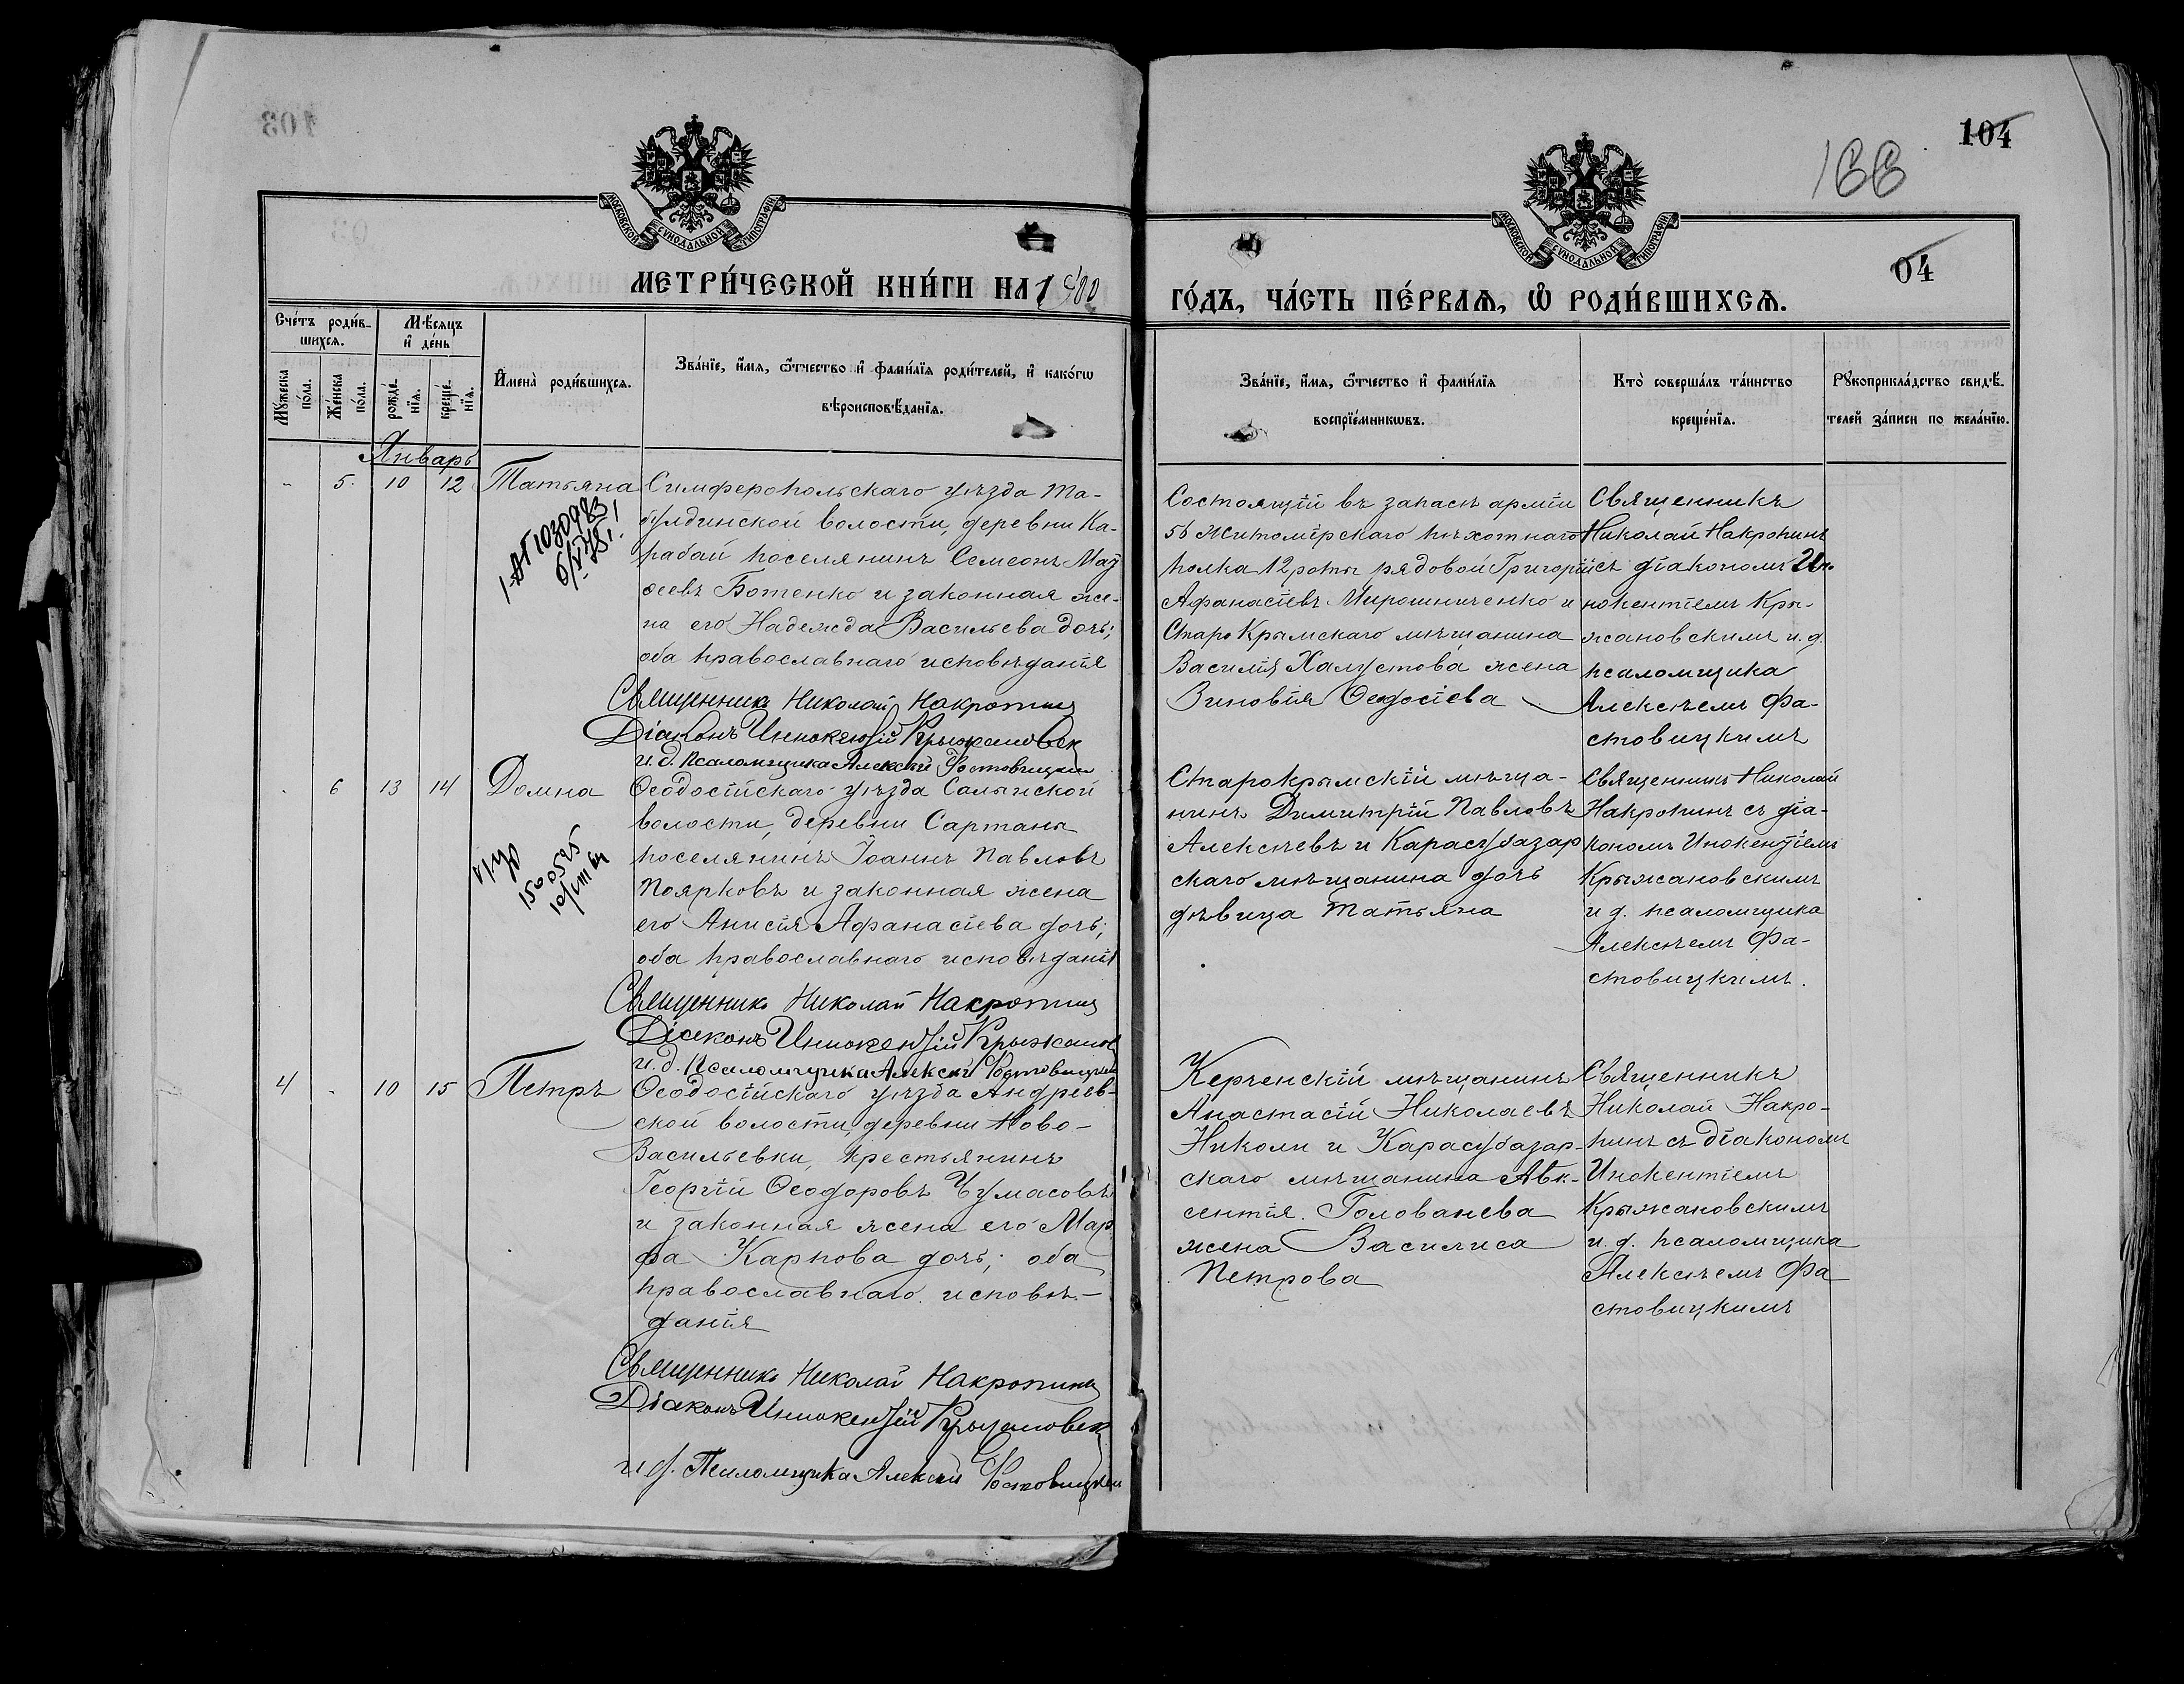 104
166
04
МОСКОВСКОЙ СѴНОДАЛЬНОЙ ТИПОГРАФІИ
МОСКОВСКОЙ СѴНОДАЛЬНОЙ ТИПОГРАФІИ
МЕТРИ́ЧЕСКОЙ КНИ́ГИ НА 1900
ГО́ДЪ, ЧА́СТЬ ПЕ́РВАЯ, Ѡ РОДИ́ВШИХСЯ.
Сче́тъ роди́в-
шихся.
Мѣ́сяцъ
и҆ де́нь
Мꙋ́жеска
по́ла.
Же́нска
по́ла.
рожде́-
нїя.
креще́-
нїя.
И҆мена̀ роди́вшихся.
Зва́нїе, и҆́мя, ѻ҆́тчество и҆ фами́лїя роди́телей, и҆ како́гѡ
вѣроисповѣ́данїя.
Зва́нїе, и҆́мя, ѻ҆́тчество и҆ фами́лїя
воспрїе́мникѡвъ.
Кто̀ соверша́лъ та́инство
креще́нїя.
Рꙋкоприкла́дство свидѣ́-
телей за́писи по жела́нїю.
Январь
- 5. 10 12 Татьяна
I-АП 1030983
Симферопольскаго уѣзда Та-
булдинской волости, деревни Ка-
рабай поселянинъ Семеонъ Мат-
ѳеевъ Ботенко и законная же-
на его Надежда Васильева дочь;
оба православнаго исповѣданія
Священникъ Николай Накропинъ
Діаконъ Иннокентій Крыжановск
и. д. Псаломщика Алексѣй Фостовицкій
Состоящій въ запасѣ арміи
56 Житомірскаго пѣхотнаго
полка 12 роты рядовой Григорій
Афанасіевъ Мирошниченко и
Старо Крымскаго мѣщанина
Василія Халустова жена
Зиновія Ѳеодосіева
Священникъ
Николай Накропинъ
съ діакономъ Ин-
нокентіемъ Кры-
жановскимъ и. д.
псаломщика
Алексѣемъ Фа-
стовицкимъ
- 6 13 14 Домна
1500525
Ѳеодосійскаго уѣзда Салынской
волости, деревни Сартаны
поселянинъ Іоаннъ Павловъ
Поярковъ и законная жена
его Анисія Афанасіева дочь;
оба православнаго исповѣданія
Священникъ Николай Накропинъ
Діаконъ Иннокентій Крыжанов
и. д. Псаломщика Алексѣй Фостовицкій
Старокрымскій мѣща-
нинъ Димитрій Павловъ
Алексѣевъ и Карасубазар
скаго мѣщанина дочь
дѣвица Татьяна
Священникъ Николай
Накропинъ съ діа-
кономъ Инокентіемъ
Крыжановскимъ
и д. псаломщика
Алексѣемъ Фа-
стовицкимъ.
4 - 10 15 Петръ
Ѳеодосійскаго уѣзда Андреев-
ской волости, деревни Ново-
Васильевки, крестьянинъ
Георгій Ѳеодоровъ Чумасовъ
и законная жена его Мар
фа Карпова дочь; оба
православнаго исповѣ-
данія
Священникъ Николай Накропинъ
Діаконъ Иннокентій Крыжановск
и д. Псаломщика Алексѣй Фостовицкій
Керченскій мѣщанинъ
Анастасій Николаевъ
Николи и Карасубазар-
скаго мѣщанина Авк-
сентія Голованева
жена Василиса
Петрова
Священникъ
Николай Накро-
пинъ съ діакономъ
Инокентіемъ
Крыжановскимъ
и. д. псаломщика
Алексѣемъ Фа
стовицкимъ